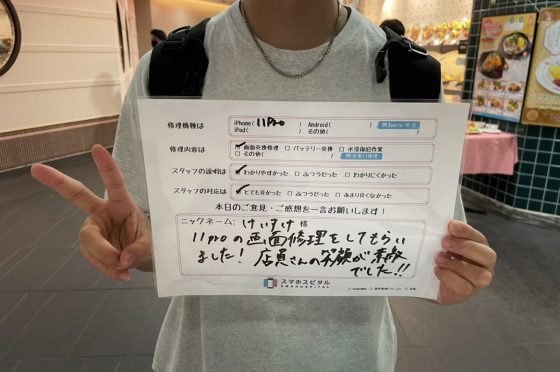 修理機種は iPhone( 11Pro ) Android( )
iPad( ) その他( )
修理内容は ☑画面交換修理 □バッテリー交換 □水没復旧作業
□その他( )
スタッフの説明は ☑わかりやすかった □ふつうだった □わかりにくかった
スタッフの対応は ☑とても良かった □ふつうだった □あまり良くなかった
本日のご意見・ご感想を一言お願いします!
ニックネーム: けいすけ 様
11proの画面修理をしてもらい
ました! 店員さんの笑顔が素敵
でした!!
スマホスピタル
SMAHOSPITAL